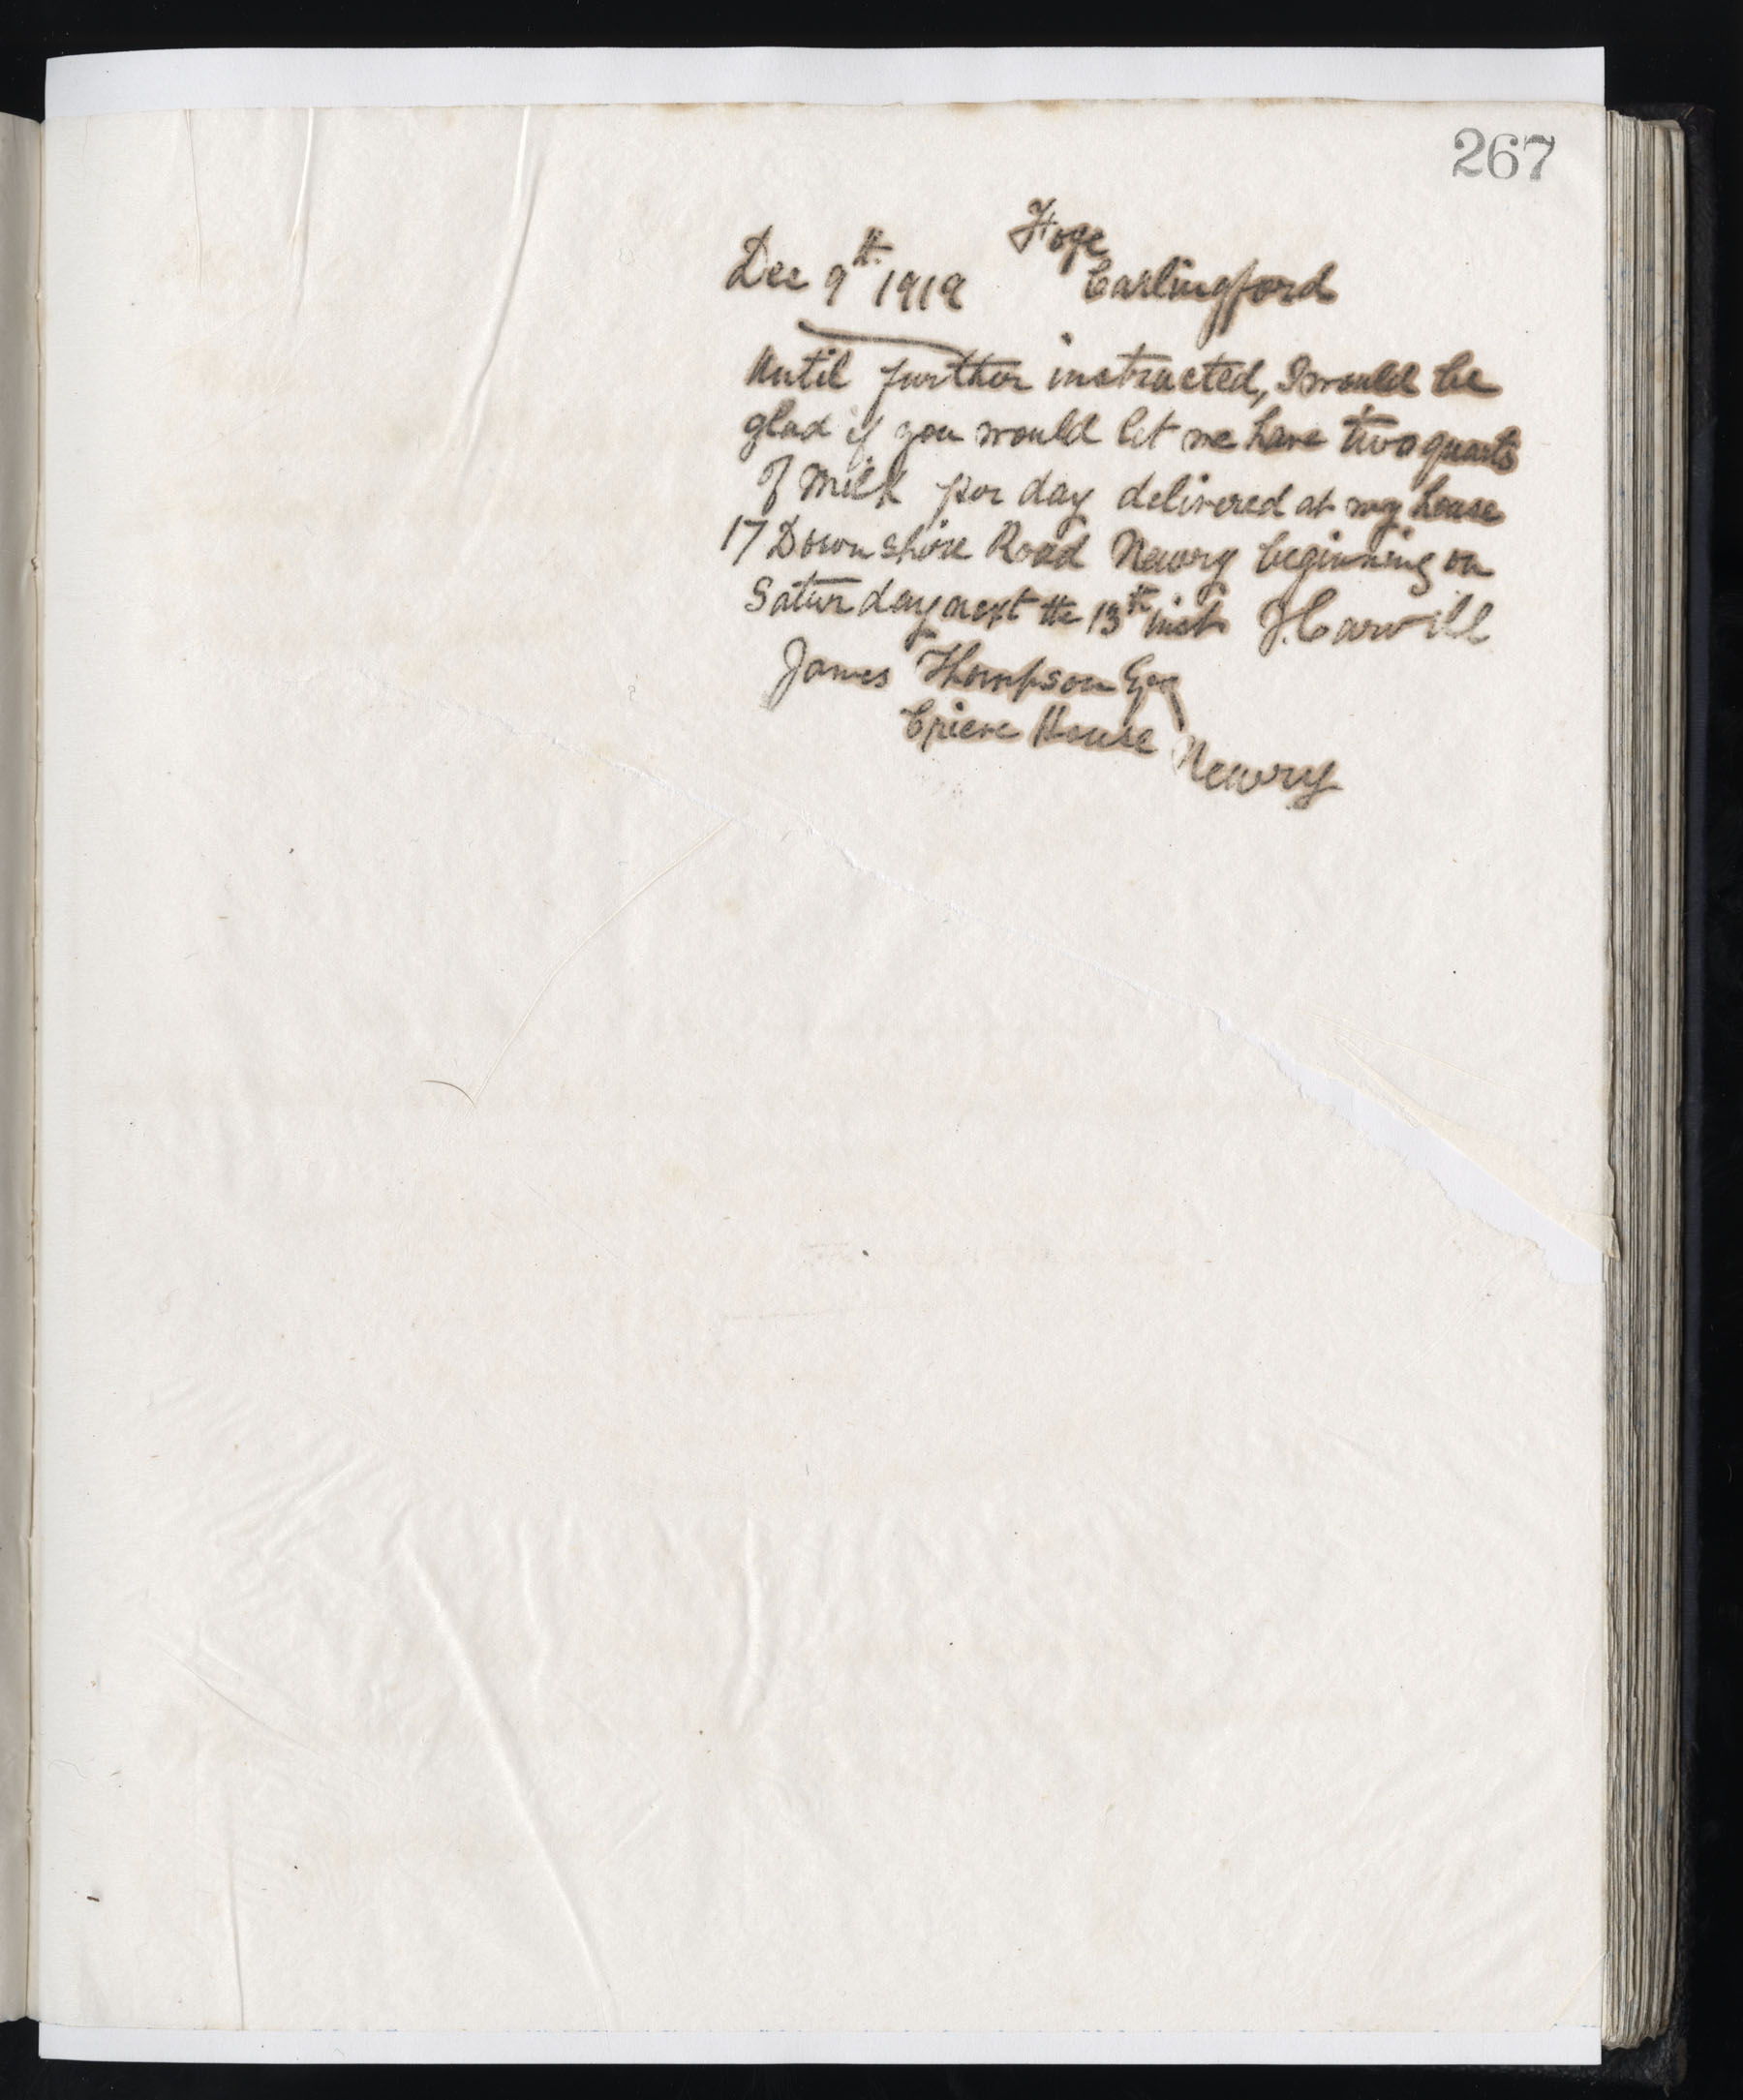 267
Foye
Dec 9th 1919 Carlingford
Until further instructed, I would be
glad if you would let me have two quarts
of Milk per day delivered at my house
17 Downshire Road Newry beginning on
Saturday next the 13th inst J. Carvill
James Thompson Esq
Crieve House
Newry